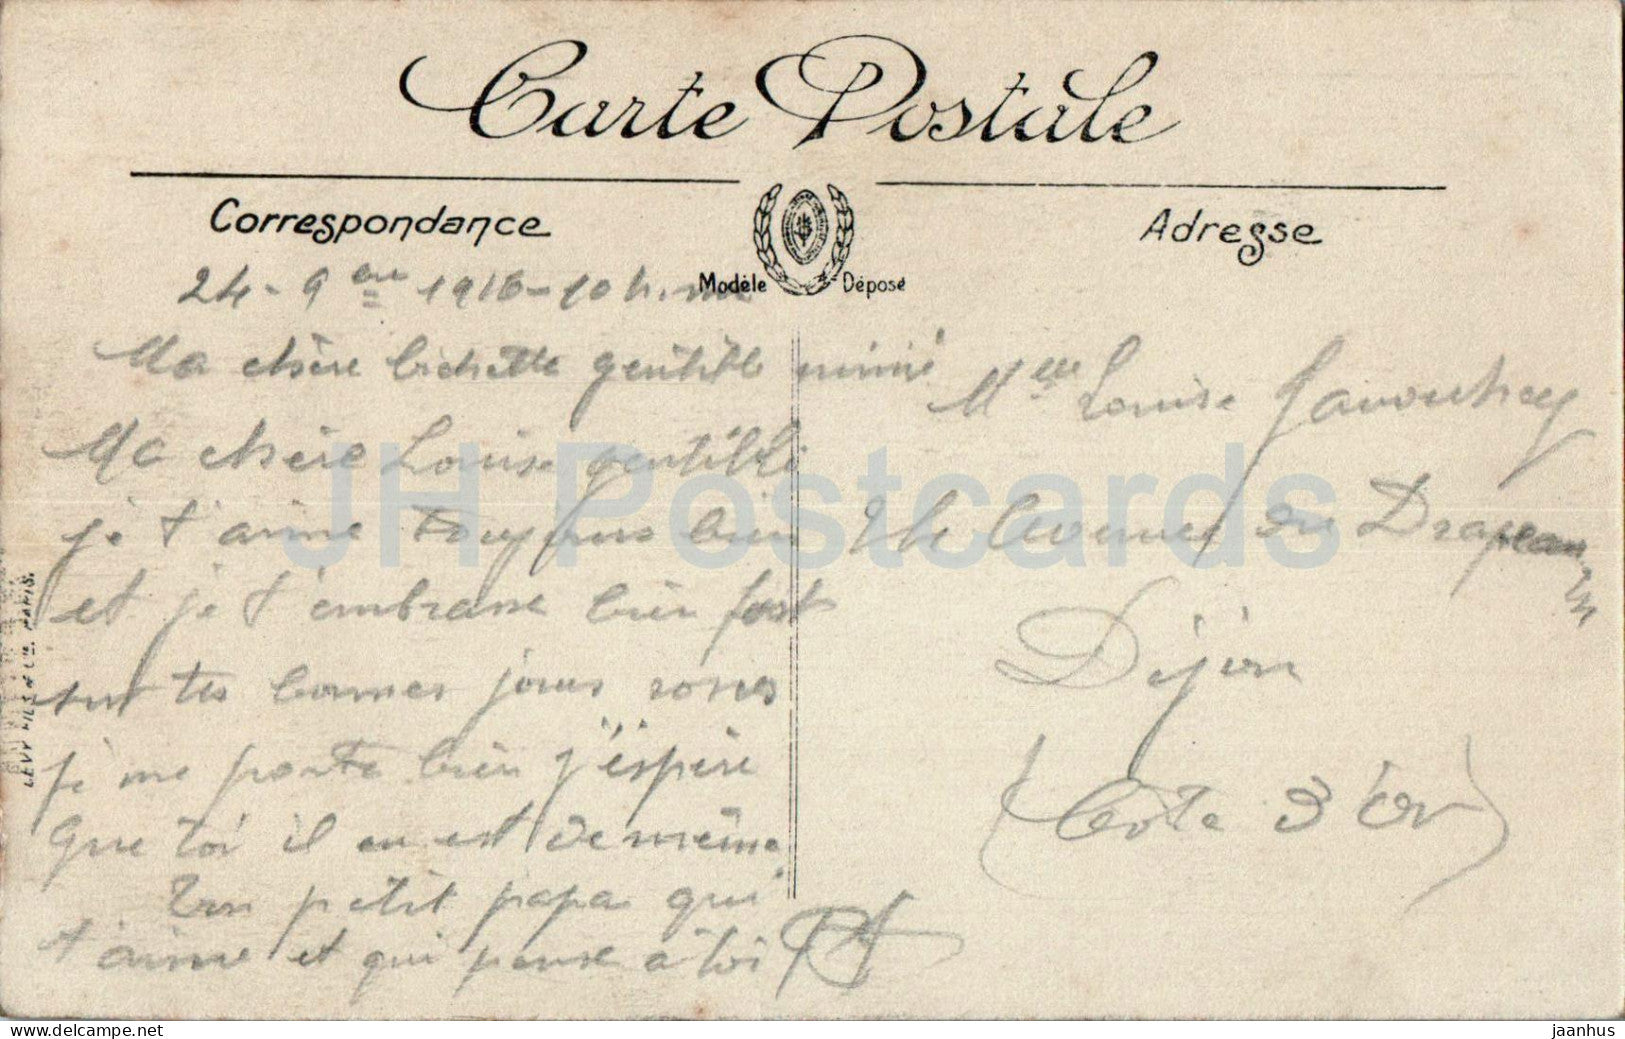 Carte Postale
Correspondance
Adresse
Modèle Déposé
24-9 1916-10h.
Ma chère bichette gentille mimi
Ma chère Louise gentille
je t'aime toujours bien
et je t'embrasse bien fort
sur tes bonnes joues roses
je me porte bien j'espère
que toi il en est de même
Ton petit papa qui
t'aime et qui pense à toi
Melle Louise
24 Avenue du Drapeau
Dijon
(Côte d'Or)
LEVY FILS & Cie. PARIS.
JH Postcards
delcampe.net
jaanhus